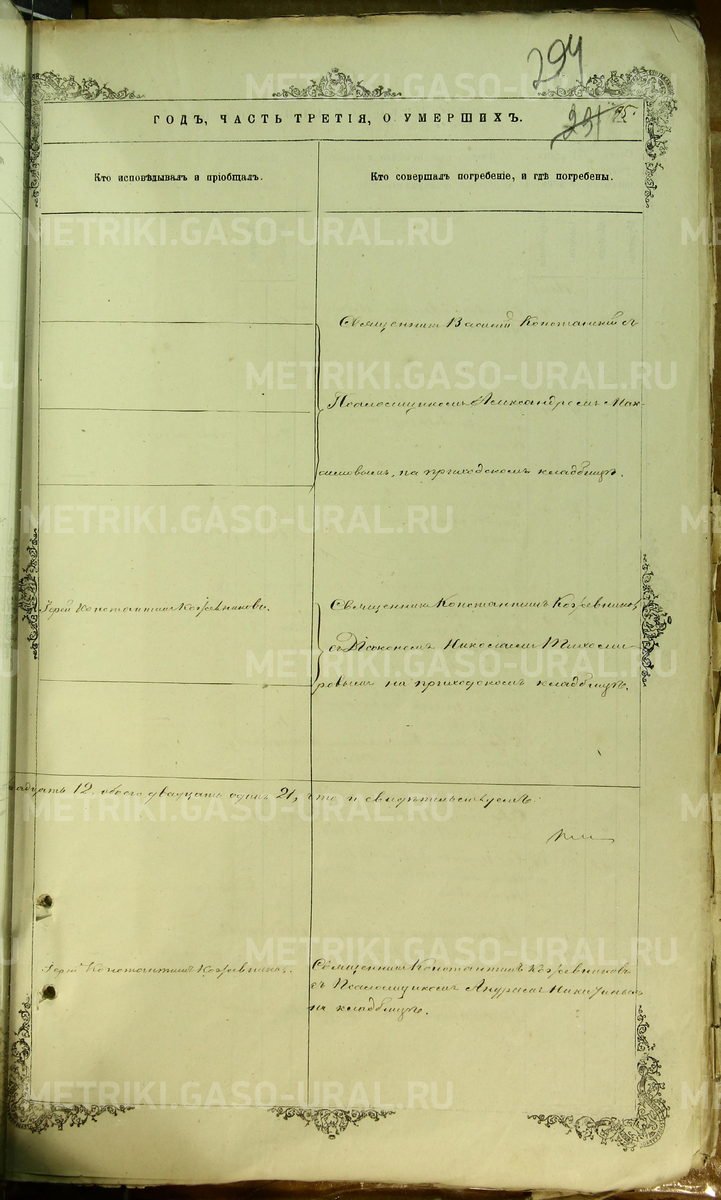 294
231
95.
ГОДЪ, ЧАСТЬ ТРЕТІЯ, О УМЕРШИХЪ.
Кто исповѣдывалъ и пріобщалъ.
Кто совершалъ погребеніе, и гдѣ погребены.
Священникъ Василій съ
Псаломщикомъ Александромъ Мак-
симовымъ, на приходскомъ кладбищѣ.
Іерей Константинъ Кожевниковъ.
Священникъ Константинъ Кожевниковъ
съ Діакономъ Николаемъ Тихоми-
ровымъ на приходскомъ кладбищѣ.
12, обоего двадцать одинъ 21, что и свидѣтельствуемъ:
Іерей Константинъ Кожевниковъ.
Священникъ Константинъ Кожевниковъ
съ Псаломщикомъ
на кладбищѣ.
METRIKI.GASO-URAL.RU